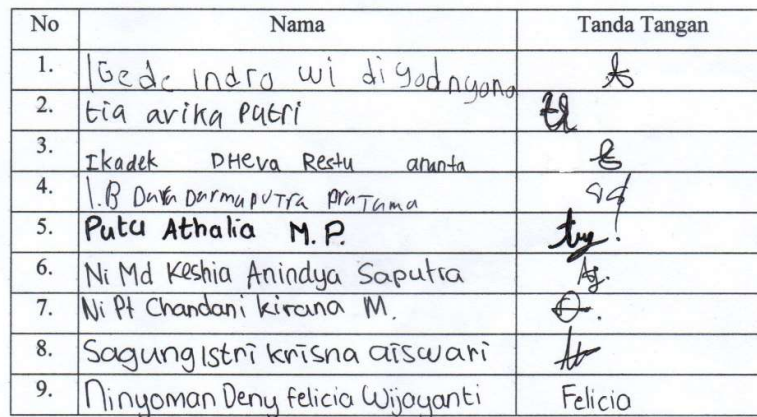 No Nama Tanda Tangan
1. I Gede indra wi diyadnyana
2. tia arika Putri
3. Ikadek DHeva Restu ananta
4. I.B Dava Darmaputra Pratama
5. Putu Athalia M.P.
6. Ni Md Keshia Anindya Saputra
7. Ni Pt Chandani kirana M.
8. Sagung istri krisna aiswari
9. Ninyoman Deny felicia Wijayanti Felicia